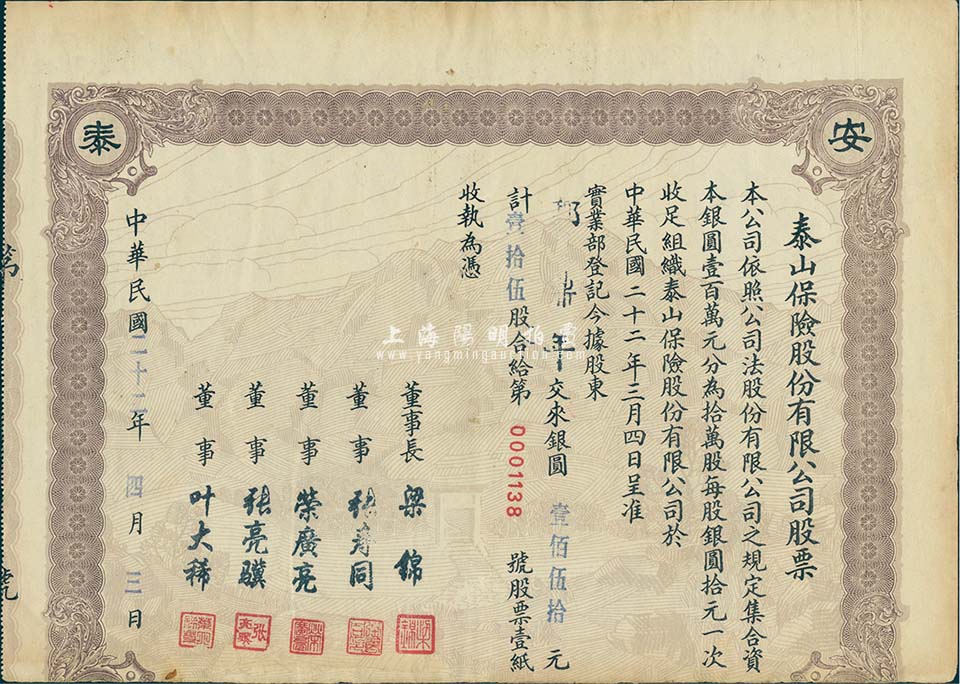 安
泰
泰山保險股份有限公司股票
本公司依照公司法股份有限公司之規定集合資
本銀圓壹百萬元分為拾萬股每股銀圓拾元一次
收足組織泰山保險股份有限公司於
中華民國二十二年三月四日呈准
實業部登記今據股東
鼎年交來銀圓壹佰伍拾元
計壹拾伍股合給第0001138號股票壹紙
收執為憑
董事長 梁錦
董事 張壽同
董事 榮廣亮
董事 張亮驥
董事 叶大稀
中華民國二十二年四月三日
上海陽明拍賣
www.yangmingauction.com